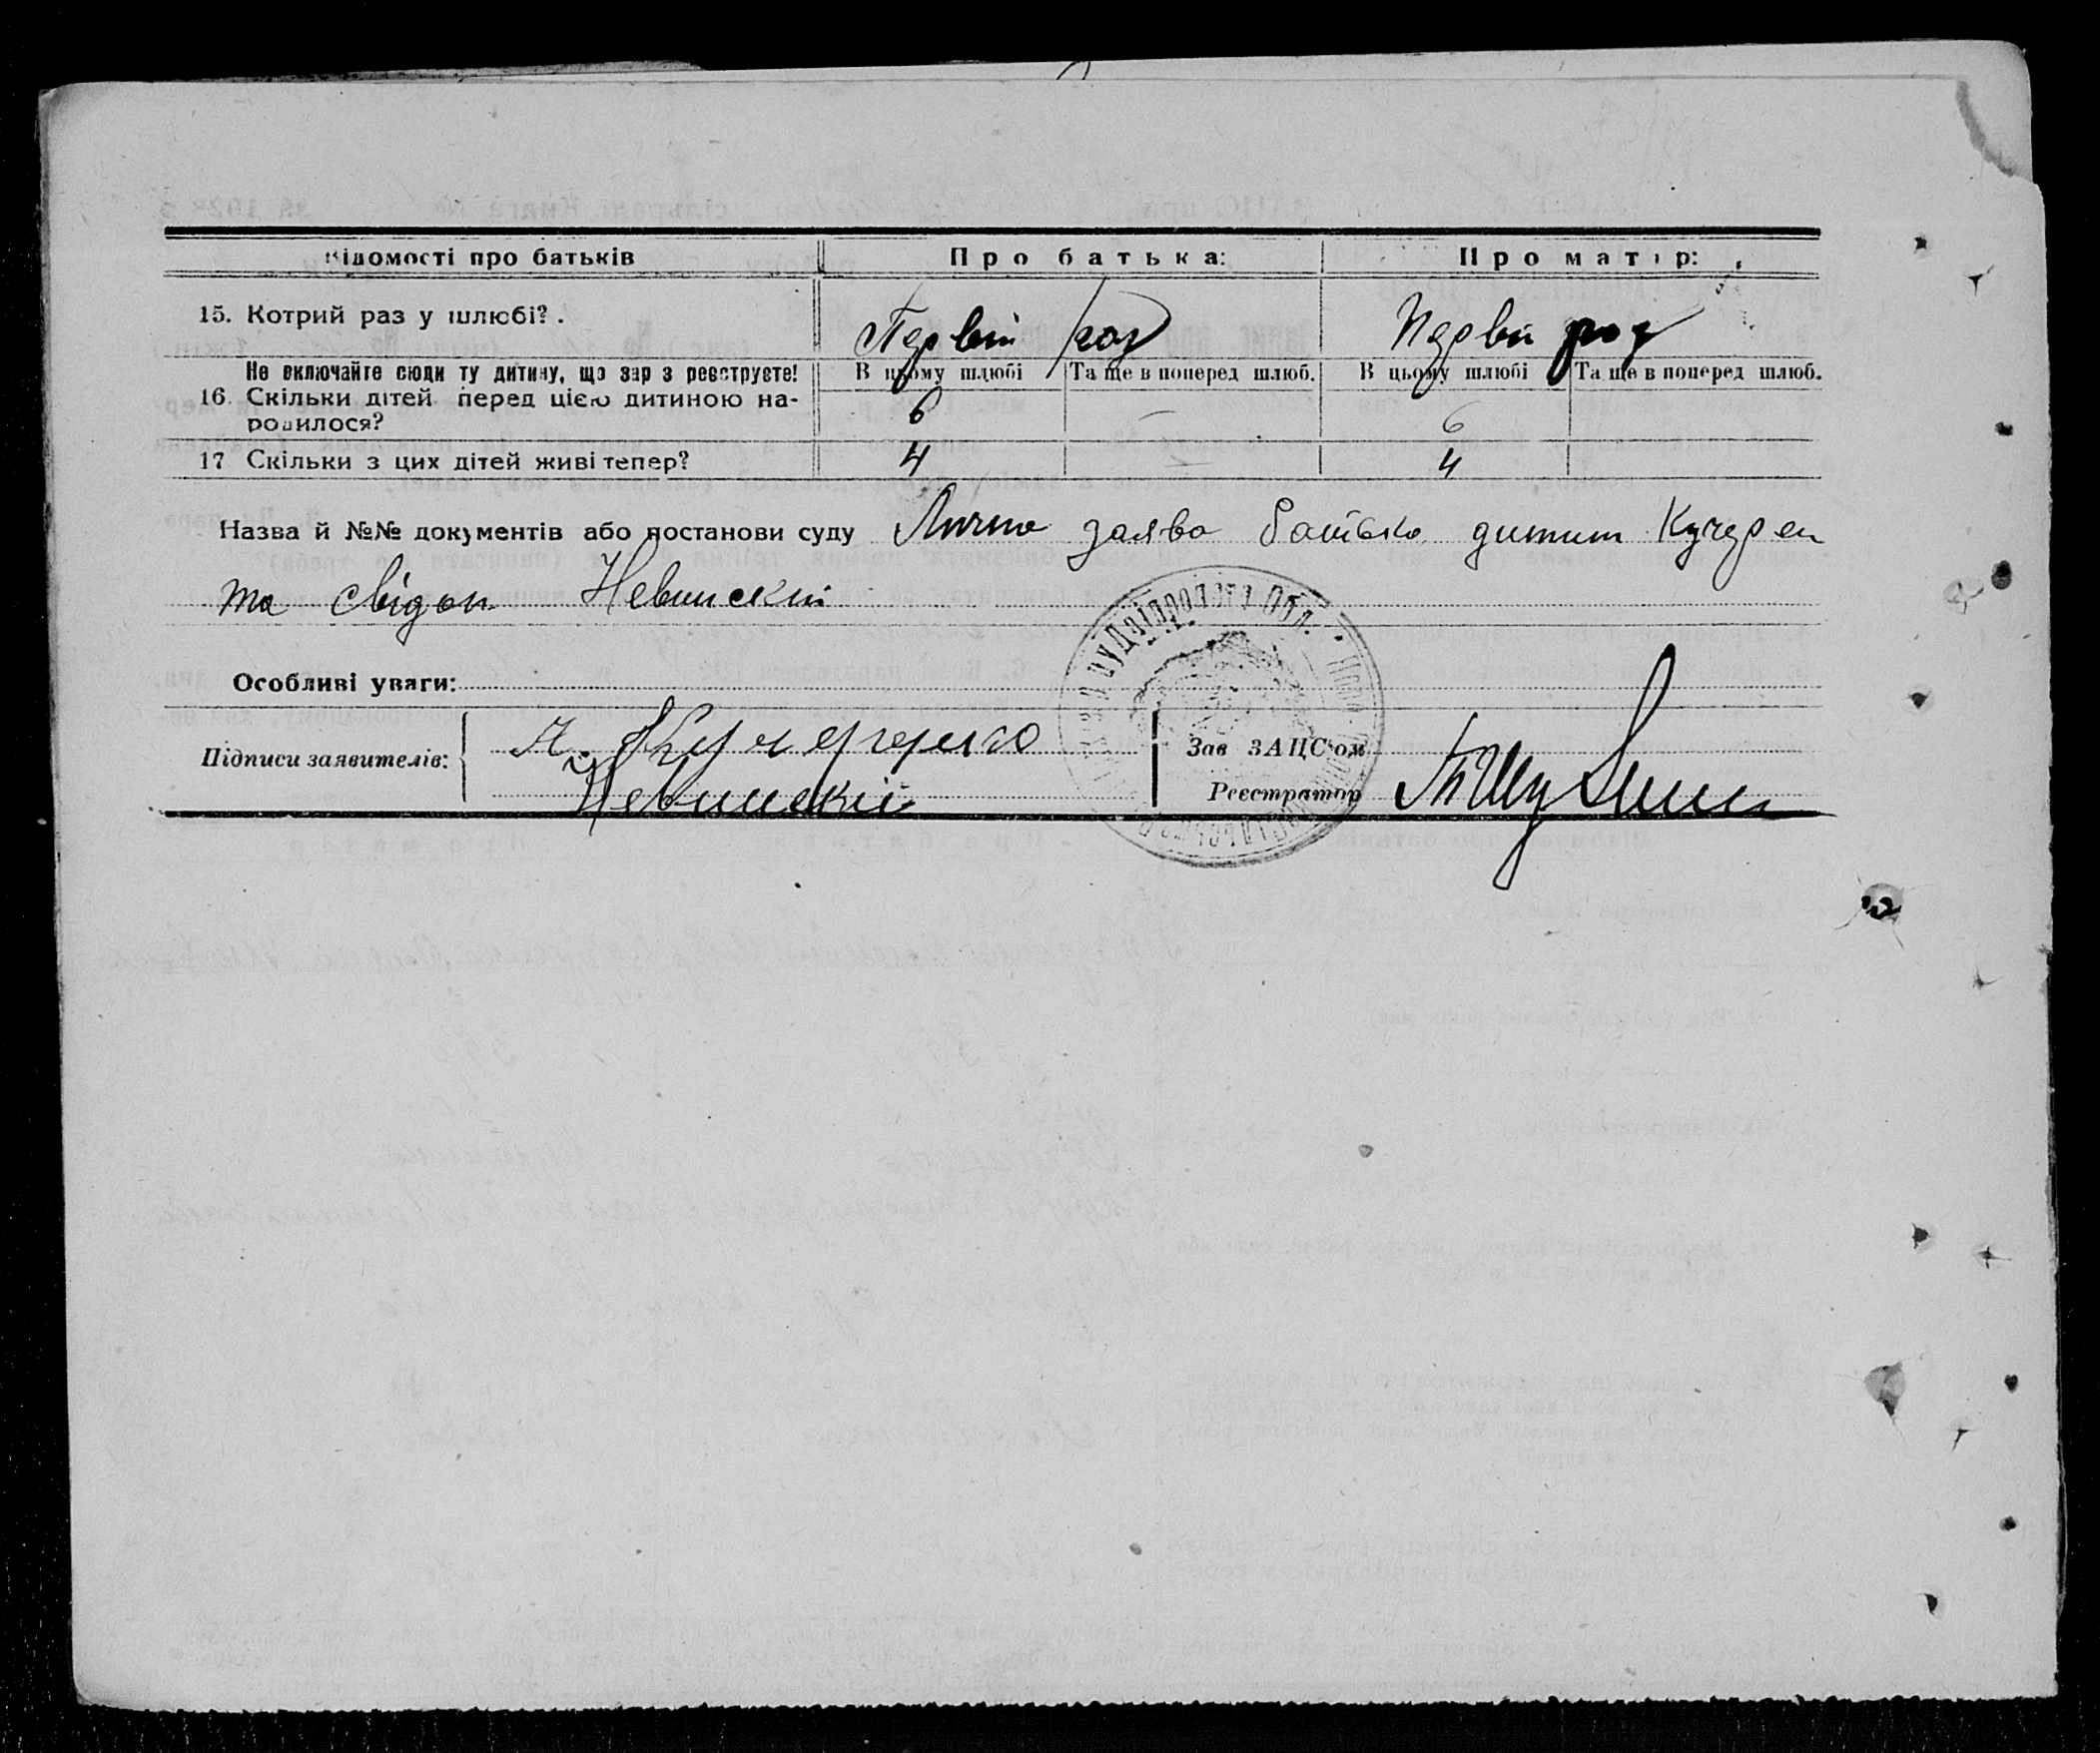 Відомості про батьків Про батька: Про матір:
15. Котрий раз у шлюбі? Первий раз Перви раз
Не включайте сюди ту дитину, що зар з реєструєте! В цьому шлюбі Та ще в поперед шлюб. В цьому шлюбі Та ще в поперед шлюб.
16. Скільки дітей перед цією дитиною на- 6 — 6
родилося?
17 Скільки з цих дітей живі тепер? 4 4
Назва й №№ документів або постанови суду Лична заява батька дитини Кучерен
та свідок Невинский
Особливі уваги:
Підписи заявителів:
Невинский
Зав ЗАЦС'ом
Реєстратор